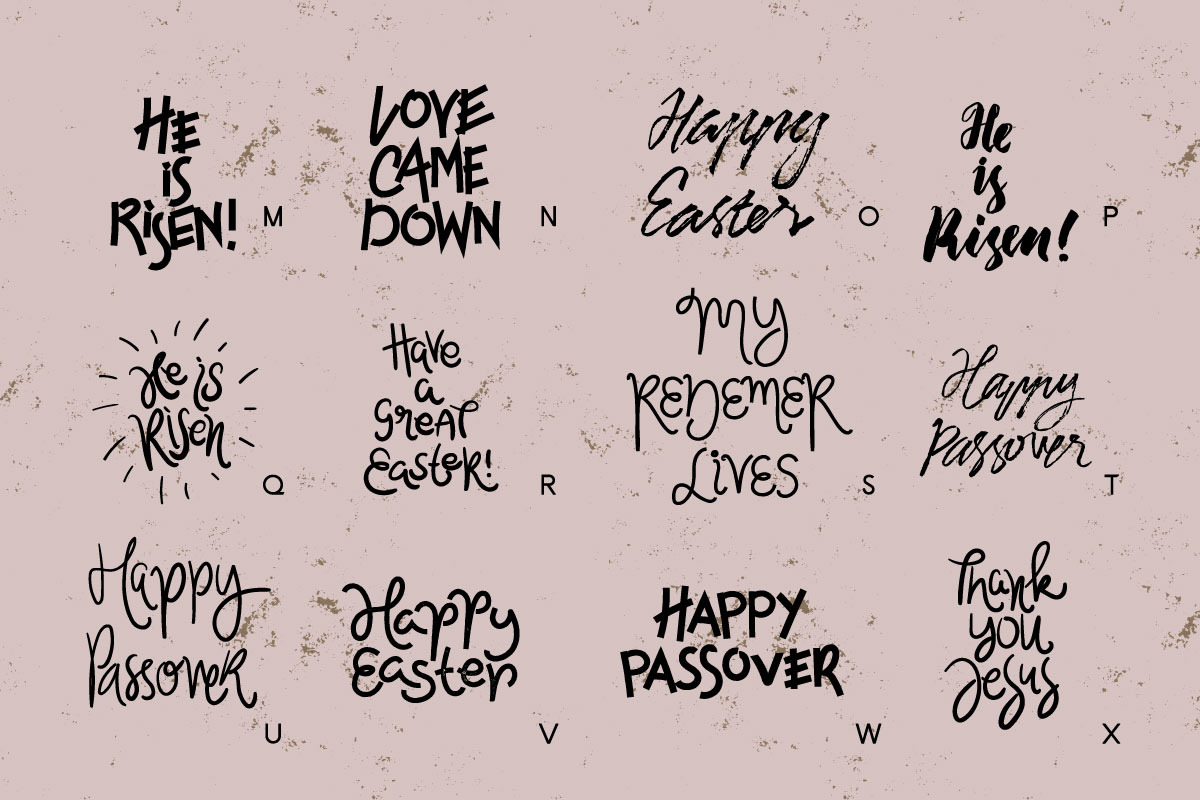 HE
is
RiSEN!
M
LOVE
CAME
DOWN
N
Happy
Easter
O
He
is
Risen!
P
He is
Risen
Q
Have
a
GReAT
EasteR!
R
MY
REDEMER
LiVES
S
Happy
Passover
T
Happy
PassoveR
U
Happy
Easter
V
HAPPY
PASSOVER
W
Thank
you
Jesus
X